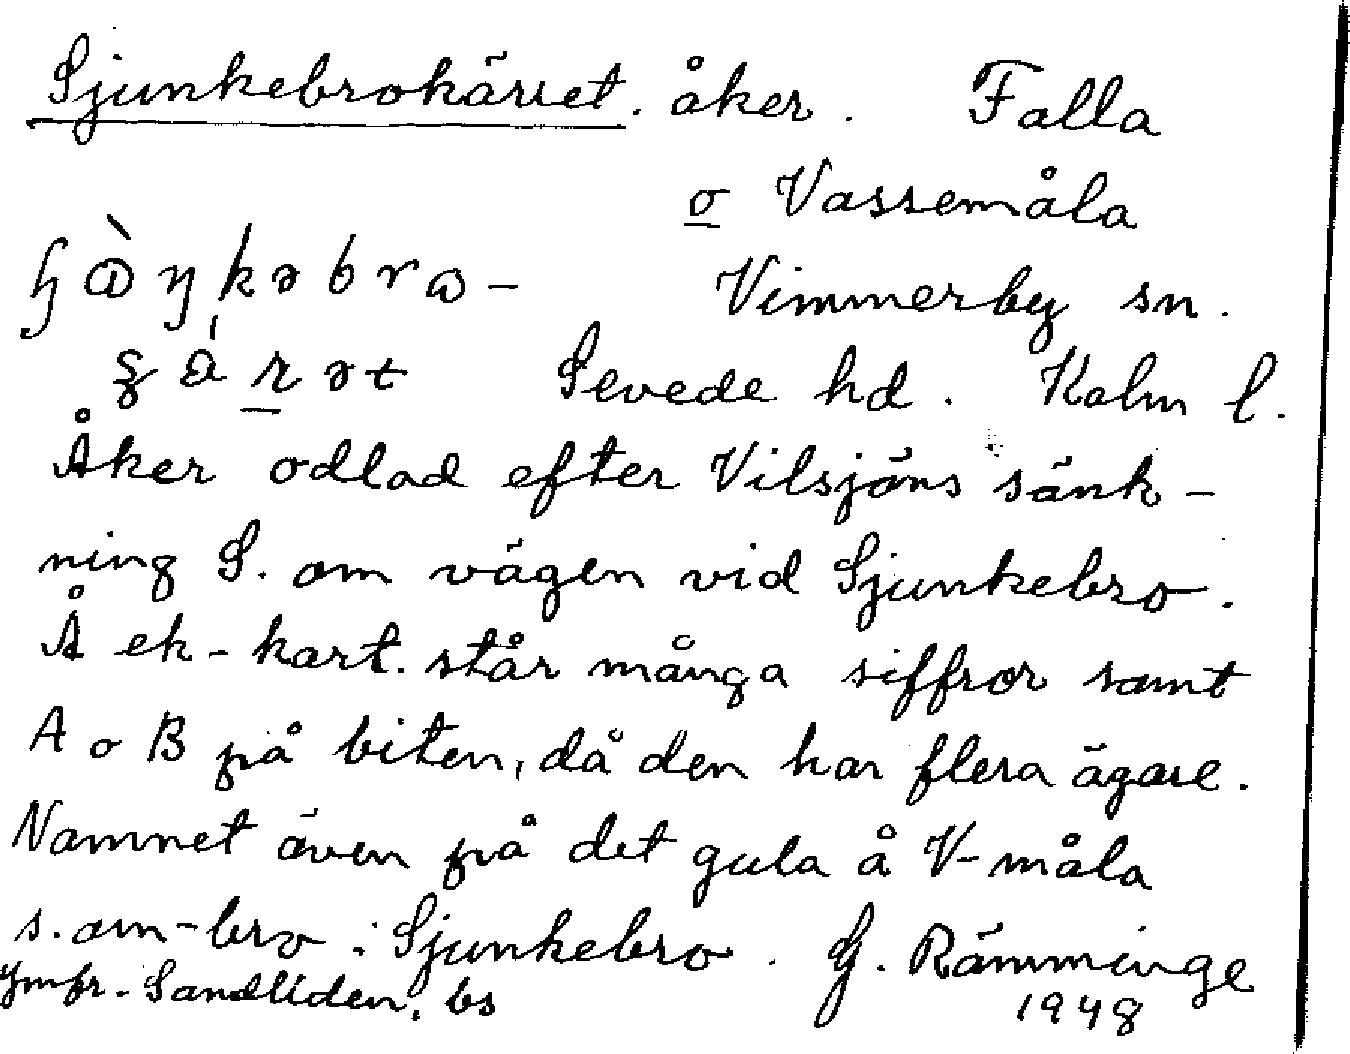 Sjunkebrokärret. åker. Falla
o Vassemåla
Vimmerby sn.
Sevede hd. Kalm l.
Åker odlad efter Vilsjöns sänk-
ning S. om vägen vid Sjunkebro.
Å ek-kart. står många siffror samt
A o B på biten, då den har flera ägare.
Namnet även på det gula å V-måla
s. om -bro : Sjunkebro. G. Rämminge
Jmfr. Sandliden, bs 1948